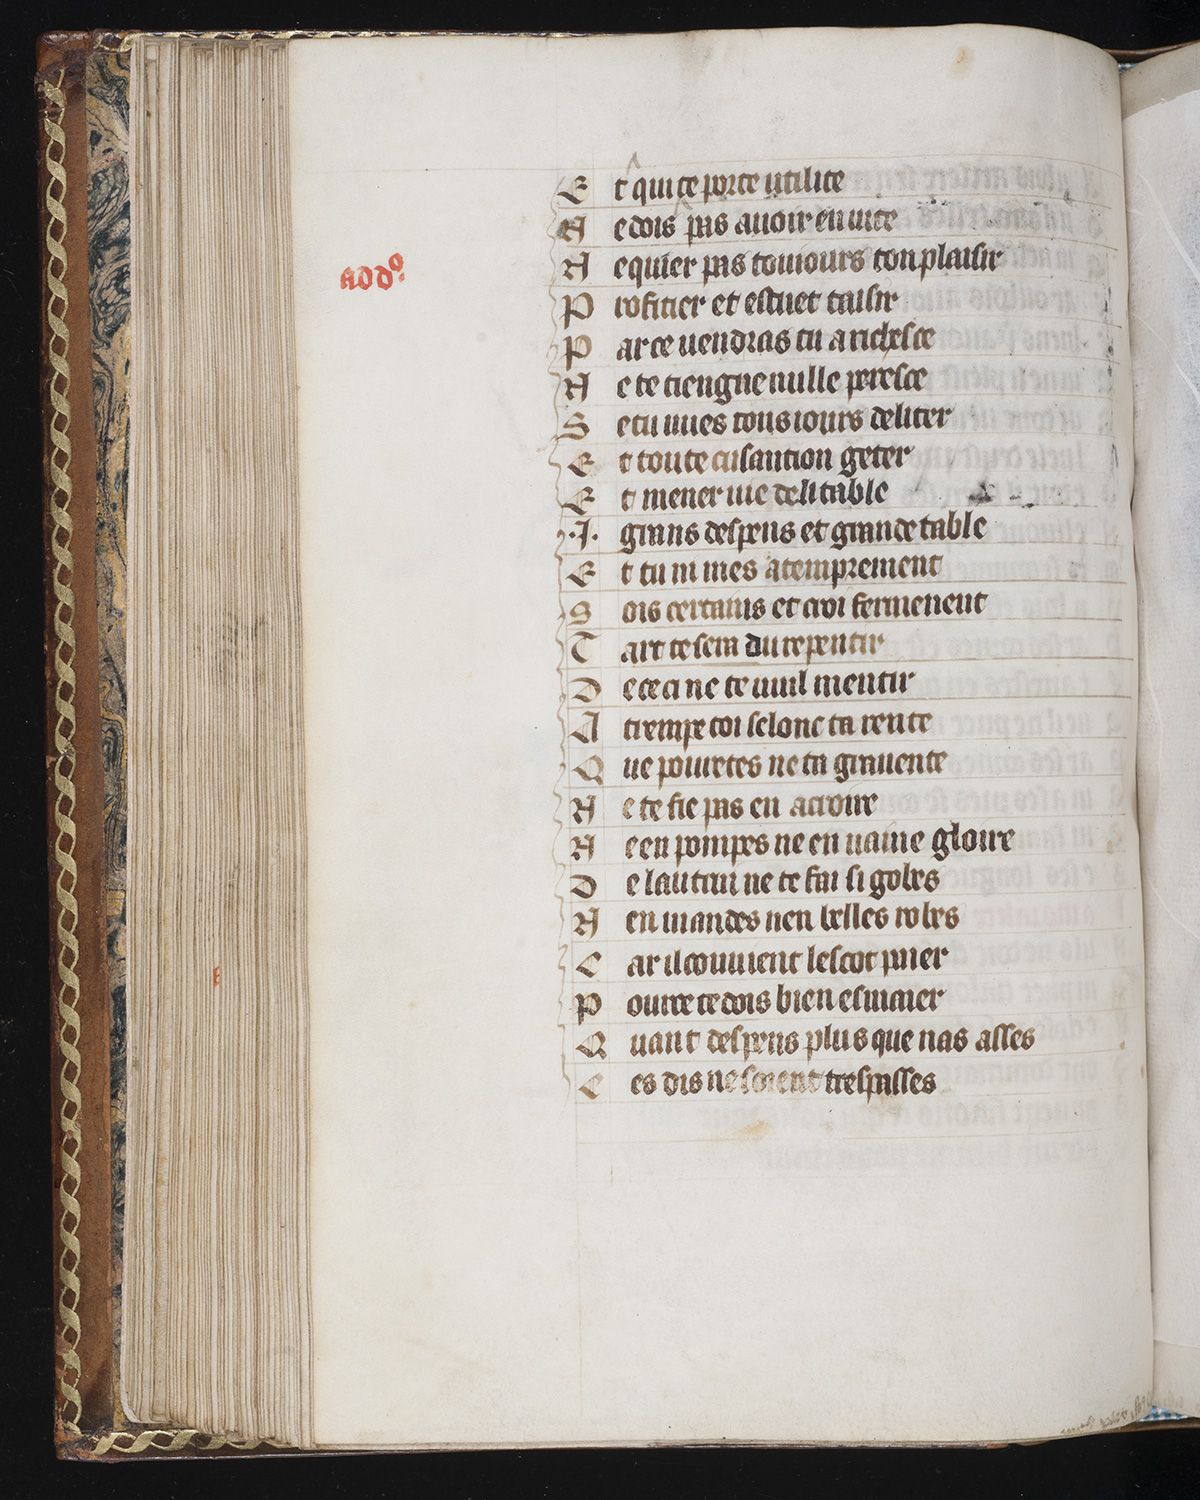 E t qui te porte utilite
N e dois pas auoir en uite
Addo.
N e quier pas touiours ton plaisir
P rofitier et estuet taisir
P ar ce uendras tu a richesce
N e te tiengne nulle peresce
S e tu uues tous iours deliter
E t toute cusancion geter
E t mener uie delitable
.I. grans despens et grande table
E t tu ni mes atemprement
S ois certains et croi fermement
T art te sera du repentir
D e ce ci ne te uuil mentir
A trempe toi selonc ta rente
Q ue pouretes ne ta grauente
N e te fie pas en acroire
N e en pompes ne en uaine gloire
D e lautrui ne te fai si gobes
N en uiandes nen belles robes
C ar il couuient lescot paier
P ourre te dois bien esmaier
Q uant despens plus que nas asses
C es dis ne soient trespasses